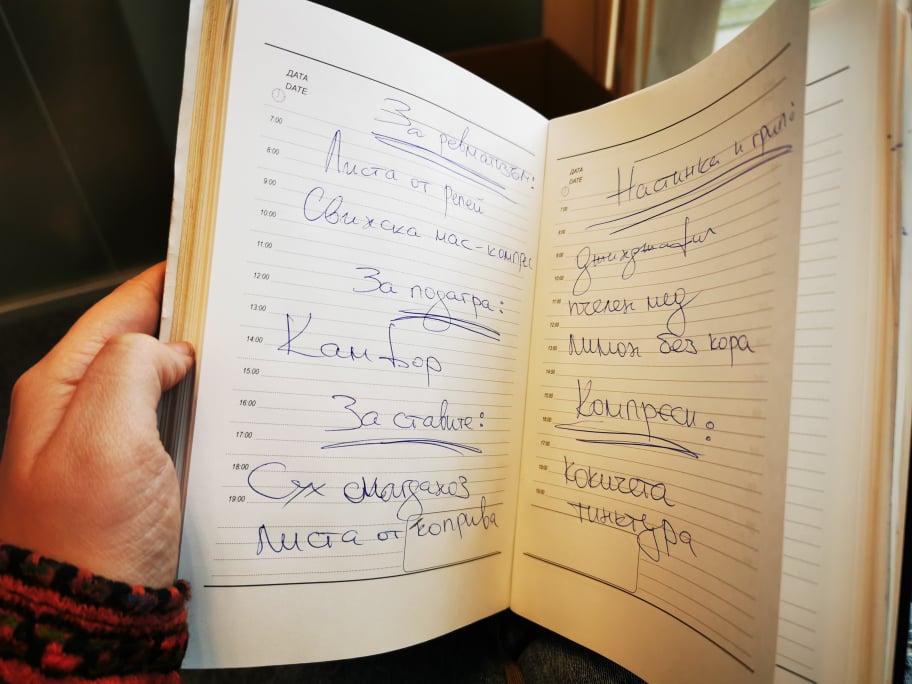 ДАТА
DATE
7:00
8:00
9:00
10:00
11:00
12:00
13:00
14:00
15:00
16:00
17:00
18:00
19:00
За ревматизъм:
Листа от репей
Свинска мас-компрес
За подагра:
Камфор
За ставите:
Сух магданоз
Листа от коприва
ДАТА
DATE
7:00
8:00
9:00
10:00
11:00
12:00
13:00
14:00
15:00
16:00
17:00
18:00
19:00
Настинка и грип:
Джинджифил
пчелен мед
Лимон без кора
Компреси:
кокичета
тинктура